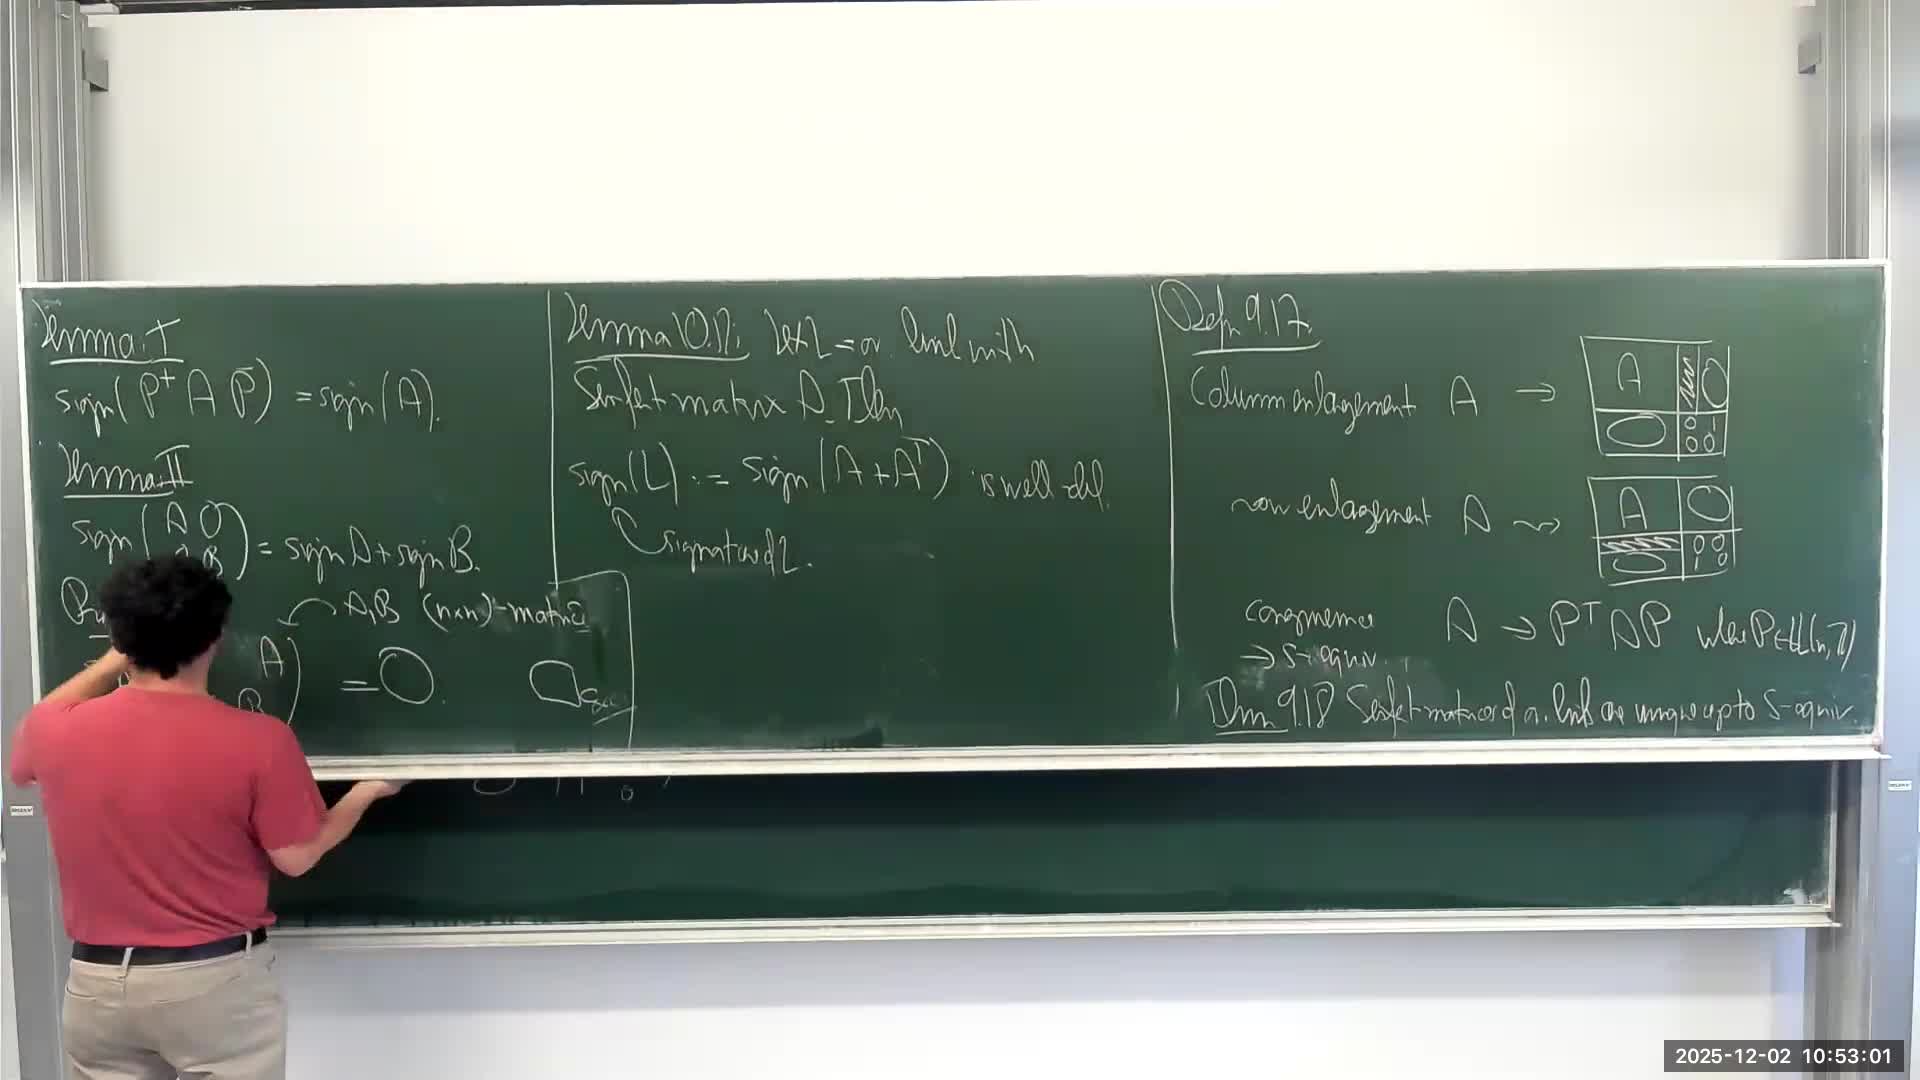 Lemma I
sign(PᵀAP) = sign(A).
Lemma II
sign(A 0
B) = sign A + sign B.
A,B (n×n)-matrices
A
B) = 0.
Lemma 10.12: Let L = or. link with
Seifert matrix A. Then
sign(L) := sign(A + Aᵀ) is well-def.
signature of L.
Defn 9.17.
Column enlargement A → A 0
0 0 1
0 0
row enlargement A ⇝ A 0
0 0 0
1 0
congruence A → PᵀAP where P∈GL(n,ℤ)
→ S-equiv.
Thm 9.18 Seifert matrices of a link are unique up to S-equiv.
2025-12-02 10:53:01